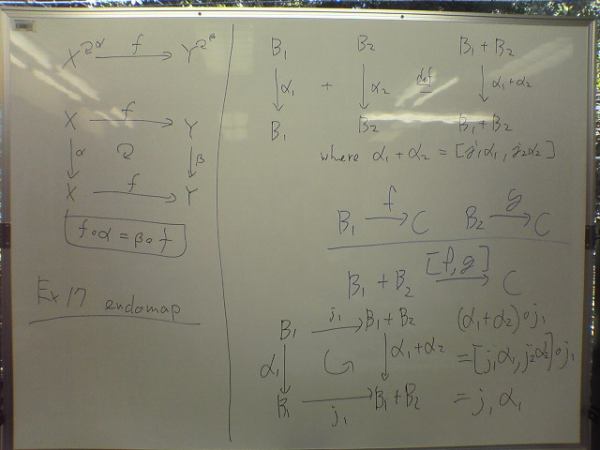 X↻α —f→ Y↻β
X —f→ Y
↓α ↻ ↓β
X —f→ Y
f∘α = β∘f
Ex 17 endomap
B₁ B₂ B₁+B₂
↓α₁ + ↓α₂ def = ↓α₁+α₂
B₁ B₂ B₁+B₂
where α₁+α₂ = [j₁α₁, j₂α₂]
B₁ —f→ C B₂ —g→ C
B₁+B₂ —[f,g]→ C
B₁ —j₁→ B₁+B₂ (α₁+α₂)∘j₁
α₁↓ ↻ ↓α₁+α₂ =[j₁α₁, j₂α₂]∘j₁
B₁ —j₁→ B₁+B₂ = j₁α₁